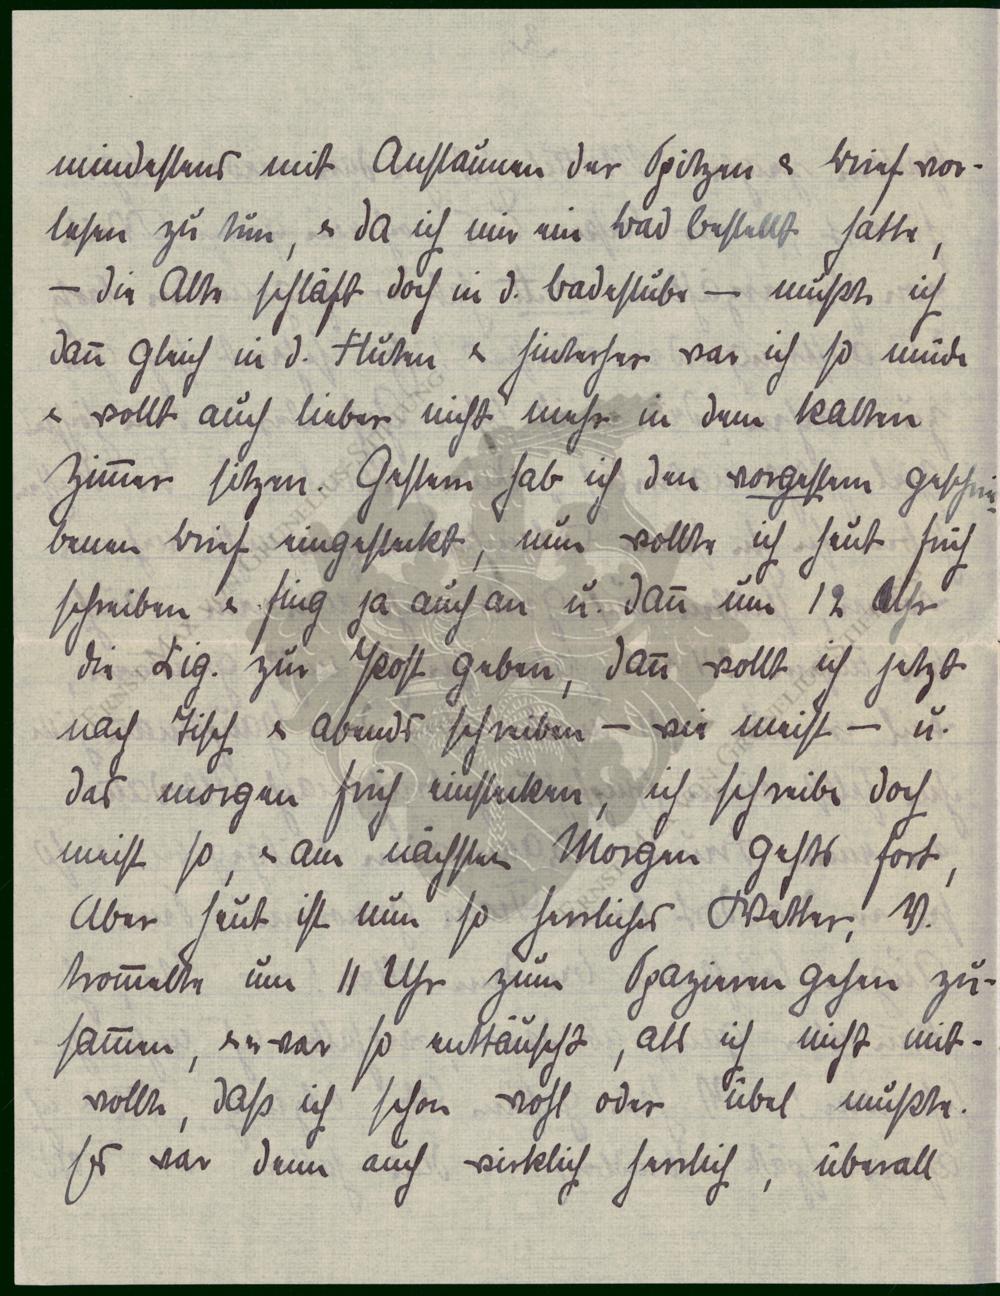 mindestens mit Anstaunen der Spitzen & Brief vor-
lesen zu tun, & da ich mir ein Bad bestellt hatte,
– die Alte schläft doch in d. Badestube – mußte ich
dañ gleich in d. Fluten & hinterher war ich so müde
& wollt auch lieber nicht mehr in dem kalten
Zim̄er sitzen. Gestern hab ich den vorgestern geschrie-
benen Brief eingesteckt, nun wollte ich heut früh
schreiben & fing ja auch an u. dañ um 12 Uhr
die Zig. zur Post geben, dañ wollt ich jetzt
nach Tisch & abends schreiben – wie meist – u.
das morgen früh einstecken, ich schreibe doch
meist so, & am nächsten Morgen gehts fort,
Aber heut ist nun so herrliches Wetter, V.
trom̄elte um 11 Uhr zum Spazieren gehen zu-
sam̄en, & er war so enttäuscht, als ich nicht mit-
wollte, daß ich schon wohl oder übel mußte.
Es war denn auch wirklich herrlich, überall